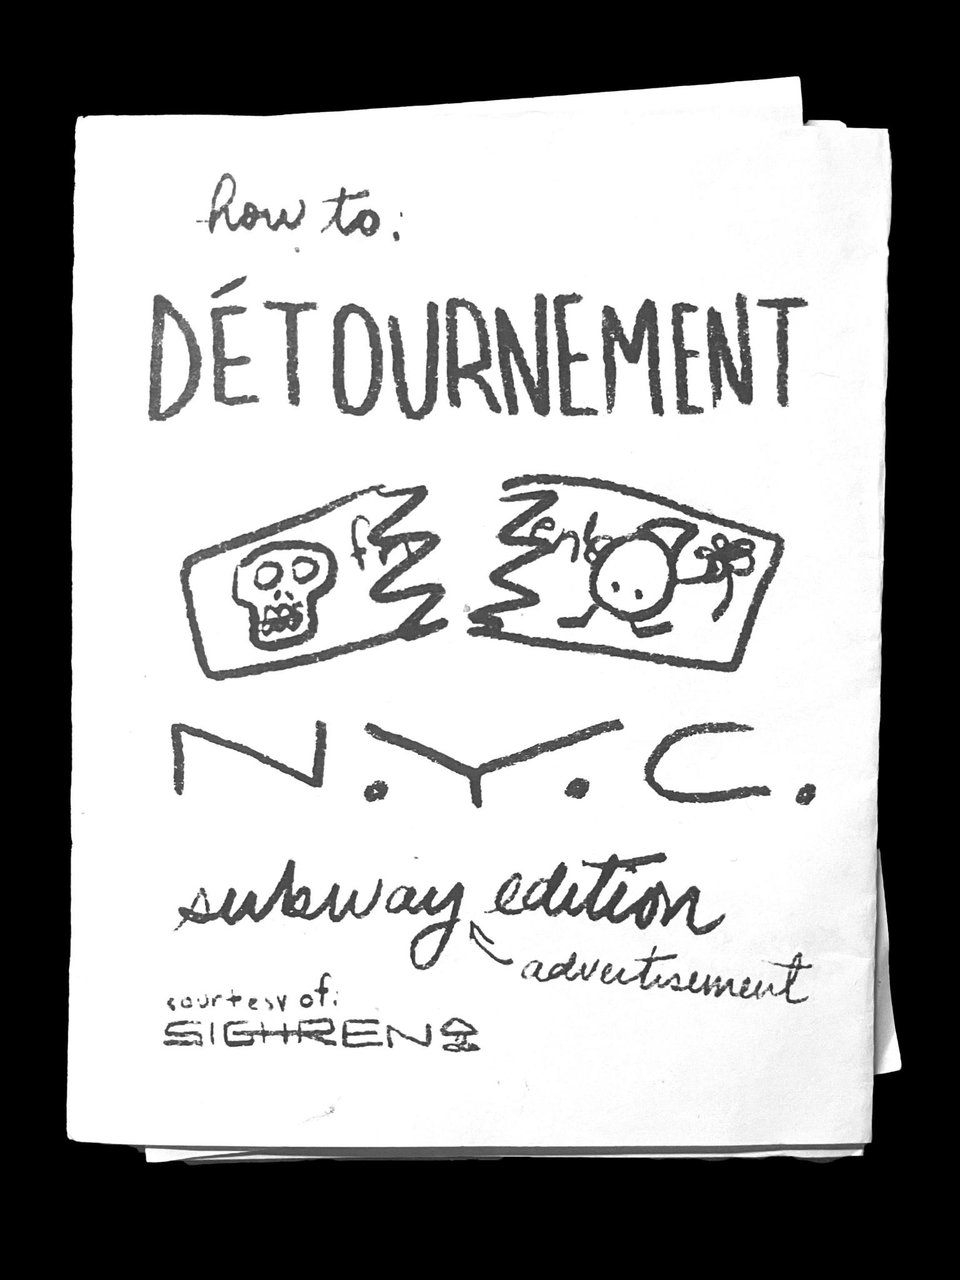 how to:
DÉTOURNEMENT
N.Y.C.
subway edition
advertisement
courtesy of:
SIGHREN